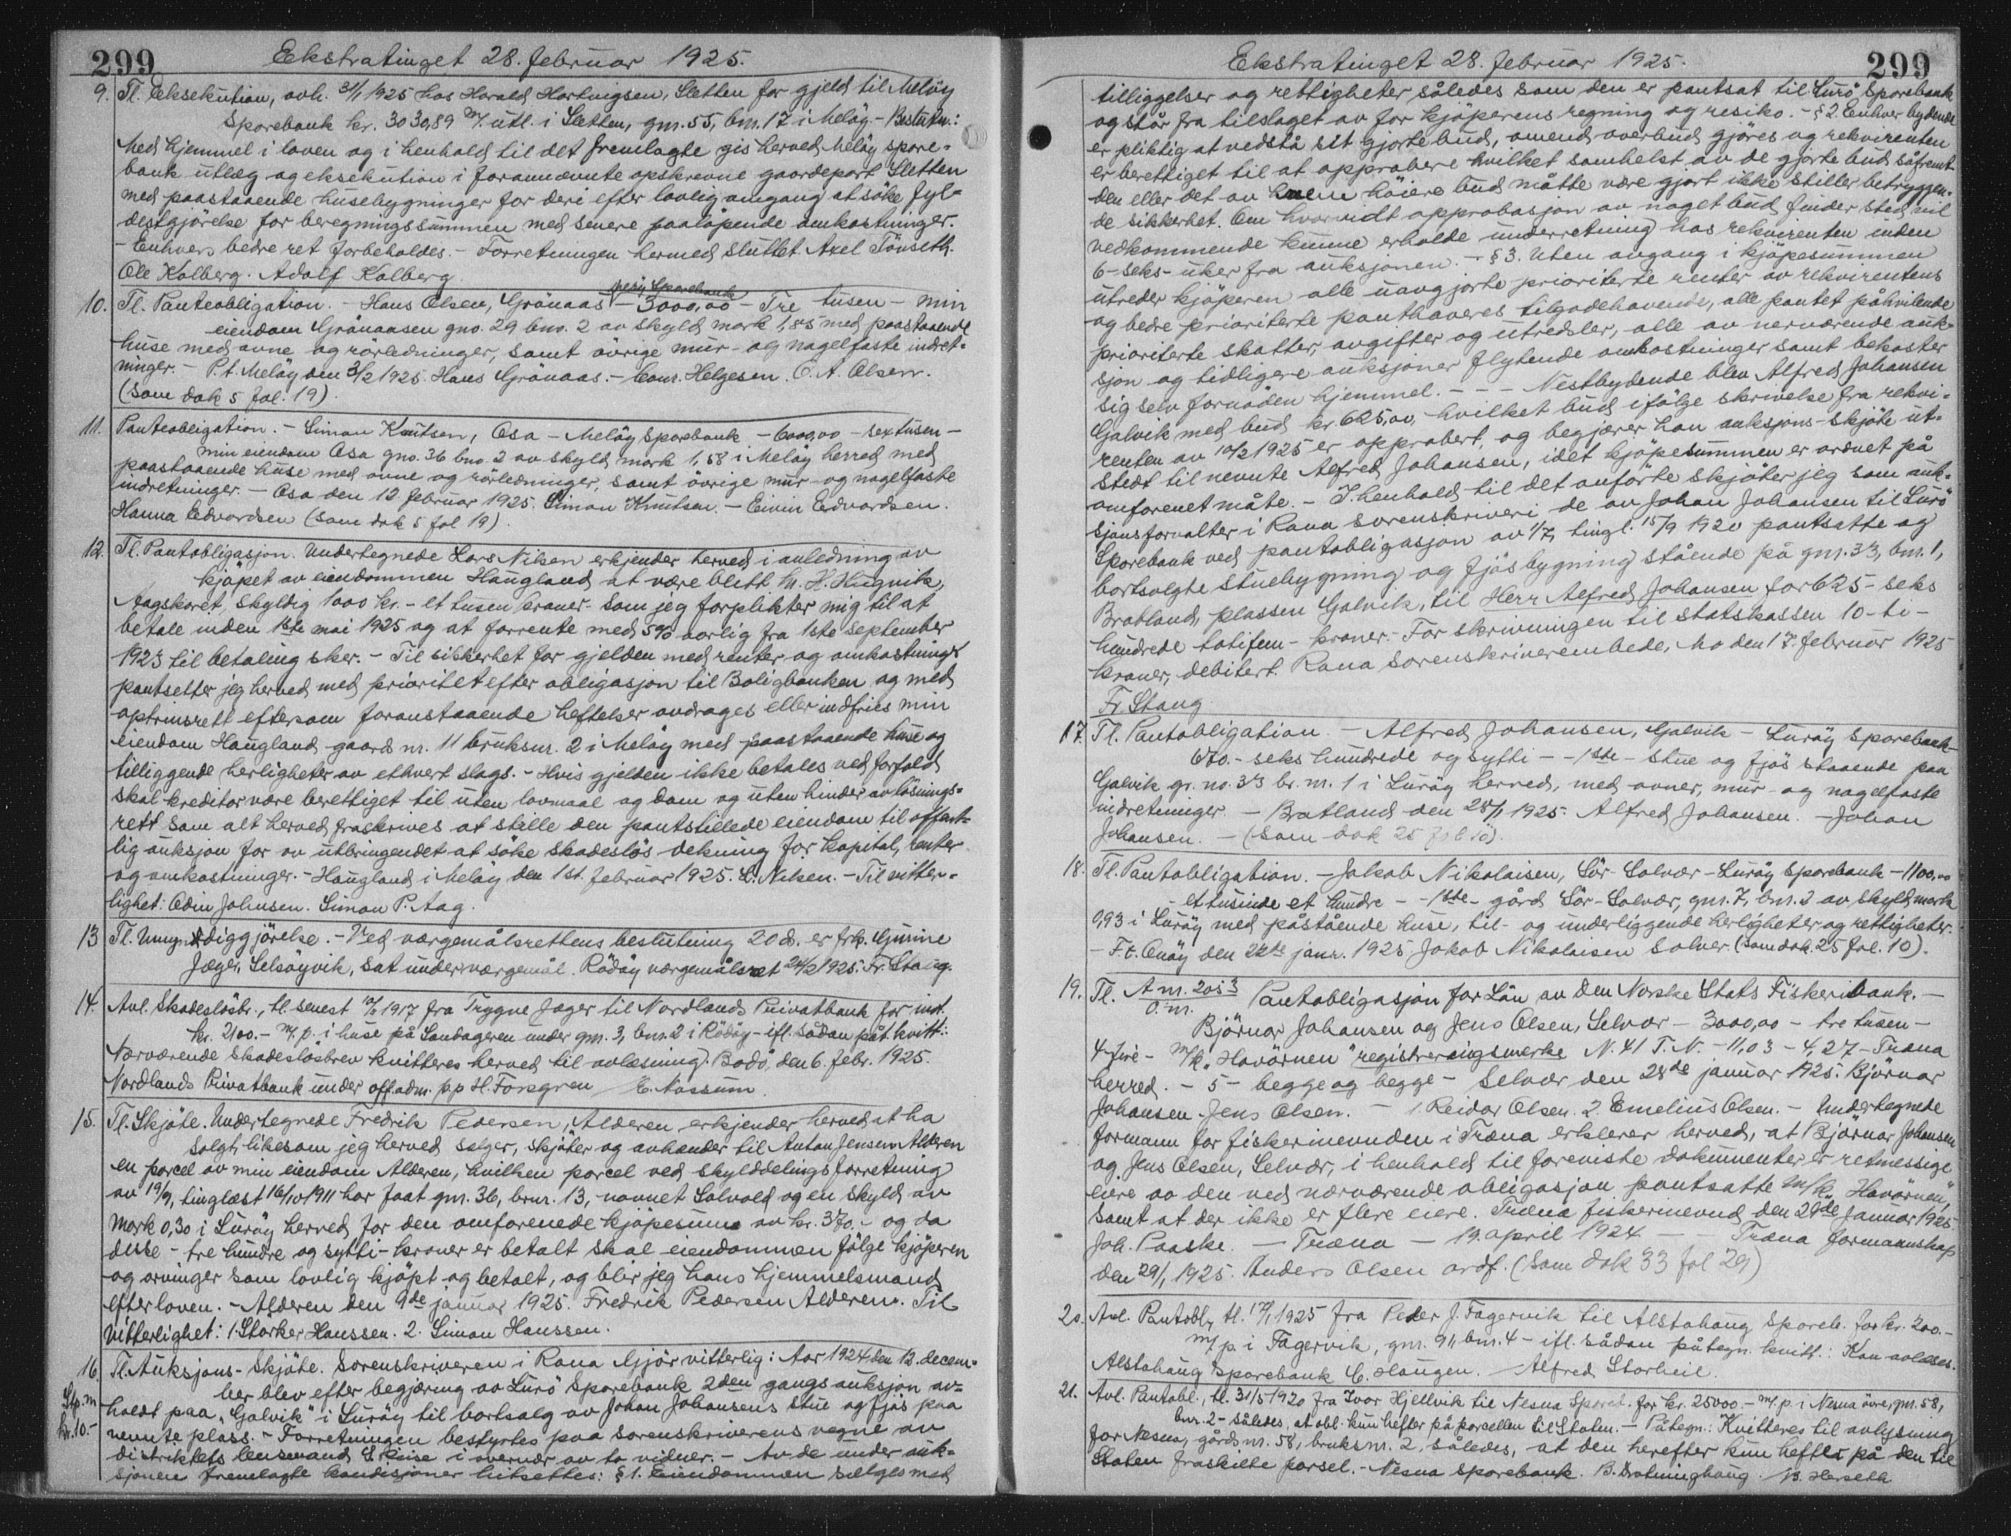 299
Ekstratinget 28. februar 1925.
9. Tl. Eksekution, avh. 31/1 1925 hos Harald Hartvigsen, Sletten for gjeld til Meløy
Sparebank kr. 3030,89 m/ utl. i Sletten, gnr. 55, bnr. 17 i Meløy - Beslutn.:
Med hjemmel i loven og i henhold til det fremlagte gis herved Meløy spare-
bank utlæg og eksekution i forannævnte opskrevne gaardepart Sletten
med paastaaende husebygninger for deri efter lovlig omgang at søke fyl-
destgjørelse for beregningssummen med senere paaløpende omkostninger.
- Enhvers bedre ret forbeholdes. - Forretningen hermed sluttet. Axel Tønseth.
Ole Kolberg. Adolf Kolberg
10. Tl. Panteobligation. - Hans Olsen, Grönaas - Meløy Sparebank - 3000,00 - Tre tusen - min
eiendom Grönaasen gno. 29 bno. 2 av skyld mark 1,85 med paastaaende
huse med ovne og rörledninger, samt övrige mur- og nagelfaste indret-
ninger. - P.t. Meløy den 3/2 1925 Hans Grönaas. - Conr. Helgesen. O. A. Olsen.
(Som dok 5 fol. 19).
11. Panteobligation. - Simon Knutsen, Osa - Meløy Sparebank - 6000,00 - sextusen -
min eiendom Osa gno. 36 bno. 2 av skyld mark 1,58 i Meløy herred med
paastaaende huse med ovne og rörledninger, samt övrige mur- og nagelfaste
indretninger. - Osa den 12 februar 1925. Simon Knutsen. - Eivin Edvardsen.
Hanna Edvardsen (Som dok 5 fol 19).
12. Tl. Pantobligasjon. Undertegnede Lars Nilsen erkjender herved i anledning av
kjøpet av eiendommen Haugland at være blitt hr. H. Hugvik,
Aagskaret, skyldig 1000 kr. - et tusen kroner - som jeg forplikter mig til at
betale inden 1ste mai 1925 og at forrente med 5% aarlig fra 1ste september
1923 til betaling sker. - Til sikkerhet for gjelden med renter og omkostninger
pantsetter jeg herved med prioritet efter obligasjon til Boligbanken og med
optrinsrett eftersom foranstaaende heftelser avdrages eller indfries min
eiendom Haugland gaards nr. 11 bruksnr. 2 i Meløy med paastaaende huse og
tilliggende herligheter av ethvert slags. - Hvis gjelden ikke betales ved forfald
skal kreditor være berettiget til uten lovmaal og dom og uten hinder av løsnings-
rett som alt herved fraskrives at stille den pantstillede eiendom til offent-
lig auksjon for av utbringendet at søke skadesløs dekning for kapital, renter
og omkostninger. - Haugland i Meløy den 1st. februar 1925. L. Nilsen. - Til vitter-
lighet: Odin Johnsen. Simon P. Aag.
13 Tl. Umyndiggjörelse. - Ved værgemålsrettens beslutning 20 ds. er frk. Gjurine
Jæger, Selsöyvik, sat under værgemål. Rödöy værgemålsret 24/2 1925. Fr. Stang.
14. Avl. Skadeslösbr., tl. senest 1917 fra Trygve Jæger til Nordlands Privatbank for int.
kr. 2100. - m/ p. i huse på Sandageren under gnr. 3, bnr. 2 i Rödöy - ifl. sådan påt. kvitt.:
Nærværende Skadeslösbrev kvitteres herved til avlæsning. Bodö, den 6. febr. 1925.
Nordlands Privatbank under off. adm. pp H. Forsgren E. Nossum.
15. Tl. Skjøte. Undertegnede Fredrik Pedersen, Alderen erkjender herved at ha
solgt, likesom jeg herved selger, skjøter og avhender til Anton Jensen Alderen
en parcel av min eiendom Alderen, hvilken parcel ved skylddelingsforretning
av 19/9, tinglæst 16/10 1911 har faat gnr. 36, brnr. 13, navnet Solvold og en skyld av
mark 0,30 i Lurøy herred, for den omforenede kjøpesum av kr. 370.- og da
disse - tre hundre og sytti - kroner er betalt skal eiendommen følge kjøperen
og arvinger som lovlig kjøpt og betalt, og blir jeg hans hjemmelsmand
efter loven. - Alderen den 9de januar 1925. Fredrik Pedersen Alderen. Til
vitterlighet: 1. Størker Hanssen. 2. Simon Hanssen.
16. Tl. Auksjons-Skjøte. Sorenskriveren i Rana Gjør vitterlig: Aar 1924 den 13. decem-
ber blev efter begjæring av Lurö Sparebank 2den gangs auksjon av-
Stp. m
kr. 10.-
holdt paa "Galvik" i Lurøy til bortsalg av Johan Johansens stue og fjøs paa
nevnte plass. - Forretningen bestyrtes paa sorenskriverens vegne av
distriktets lensmand i overvær av to vidner. - Av de under auk-
sjonen fremlagte kondisjoner hitsettes: § 1. Eiendommen selges med
299
Ekstratinget 28. februar 1925.
tilliggelser og rettigheter således som den er pantsat til Lurö Sparebank
og står fra tilslaget av for kjøperens regning og resiko. - § 2. Enhver bydende
er pliktig at vedstå sit gjorte bud, omend overbud gjøres og rekvirenten
er berettiget til at approbere hvilket somhelst av de gjorte bud såfremt
den eller det av hvem høiere bud måtte være gjort ikke stiller betryggen-
de sikkerhet. Om hvorvidt approbasjon av noget bud finder sted vil
vedkommende kunne erholde underretning hos rekvirenten inden
6 - seks - uker fra auksjonen. - § 3. Uten avgang i kjøpesummen
utreder kjøperen alle uavgjorte prioriterte renter av rekvirentens
og bedre prioriterte panthaveres tilgodehavende, alle pantet påhvilende
prioriterte skatter, avgifter og utredsler, alle av nærværende auk-
sjon og tidligere auksjoner flytende omkostninger samt bekoster
sig selv fornöden hjemmel. - - - Nestbydende blev Alfred Johansen
Galvik med bud kr. 625,00, hvilket bud ifølge skrivelse fra rekvi-
renten av 10/2 1925 er approbert, og begjærer han auksjons-skjøte ut-
stedt til nevnte Alfred Johansen, idet kjøpesummen er ordnet på
omforenet måte. - I henhold til det anførte skjøter jeg som auk-
sjonsforvalter i Rana sorenskriveri de av Johan Johansen til Lurö
Sparebank ved pantobligasjon av 1/7, tingl. 15/9 1920 pantsatte og
bortsolgte stuebygning og fjøsbygning stående på gnr. 33, bnr. 1,
Bratland, plassen Galvik, til Herr Alfred Johansen for 625 - seks
hundrede totifem - kroner. - For skrivningen til statskassen 10 - ti -
kroner, debitert. Rana sorenskriverembede, Mo den 17. februar 1925
Fr Stang
17. Tl. Pantobligation. - Alfred Johansen, Galvik - Lurøy Sparebank -
670.- seks hundrede og sytti - - 1ste - stue og fjøs staaende paa
Galvik gr. no. 33 br. nr. 1 i Lurøy herred, med ovner, mur- og nagelfaste
indretninger - Bratland den 28/1 1925. Alfred Johansen. - Johan
Johansen. - (Som dok 25 fol 10)
18. Tl. Pantobligation. - Jakob Nikolaisen, Sör-Solvær - Lurøy Sparebank - 1100,00
- et tusinde et hundre - - 1ste - gård Sör-Solvær, gnr. 7, bnr. 2 av skyld mark
0,93 i Lurøy med påstående huse, til- og underliggende herligheter og rettigheter.
- F.t. Onøy den 22de janr. 1925 Jakob Nikolaisen Solvær. (Som dok. 25 fol. 10).
19. Tl. A nr. 2053 / O. nr. Pantobligasjon for Lån av Den Norske Stats Fiskeribank. -
Björnar Johansen og Jens Olsen, Selvær - 3000,00 - tre tusen -
4 - fire - m/k. "Havörnen" registreringsmerke N. 41 T.N. - 11,03 - 4,27 - Træna
herred. - 5 - begge og begge - Selvær den 28de januar 1925. Björnar
Johansen. Jens Olsen. - 1. Reidar Olsen. 2. Emelius Olsen. - Undertegnede
formann for fiskerinevnden i Træna erklærer herved, at Bjørnar Johansen
og Jens Olsen, Selvær, i henhold til foreviste dokumenter er retmessige
eiere av den ved nærværende obligasjon pantsatte m/k. "Havörnen",
samt at der ikke er flere eiere. Træna fiskerinevnd, den 29de Januar 1925
Joh. Paaske. - Træna - 19. april 1924 - - Træna formannskap
den 29/1 1925. Anders Olsen ordf. (Som dok 33 fol 29)
20. Avl. Pantobl., tl. 17/1 1925 fra Peder J. Fagervik til Alstahaug Spareb. for kr. 200.-
m/ p. i Fagervik, gnr. 91, bnr. 4 - ifl. sådan påtegn. kvitt.: Kan avlæses.
Alstahaug Sparebank C. Haugen. Alfred Storheil.
21. Avl. Pantobl., tl. 31/5 1920 fra Ivar Hjellvik til Nesna Spareb. for kr. 25000.- m/ p. i Nesna övre, gnr. 58,
bnr. 2 - således, at obl. kun hefter på parsellen til Staten. - Påtegn.: Kvitteres til avlysning
for Nesna, gårds nr. 58, bruks nr. 2, således, at den herefter kun heftes på den til
Staten fraskilte parsel. - Nesna Sparebank. B. Drotninghaug. B. Herseth